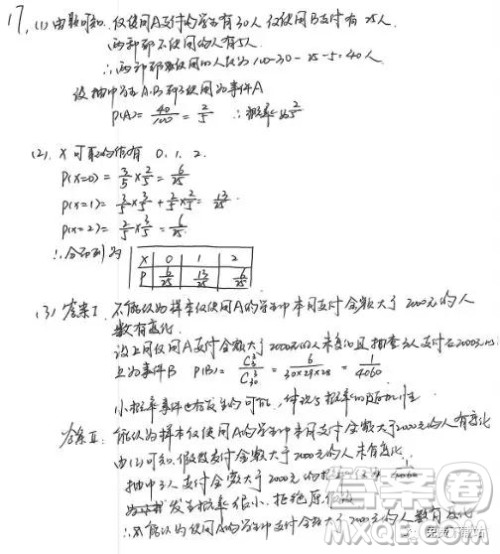 17. (1) 由题可知,仅使用A支付的学生有30人,仅使用B支付有25人,
两种都不使用的人有5人.
∴两种都使用的人有为100-30-25-5=40人
设抽中为A.B都使用为事件A
P(A)=40/100=2/5 ∴概率为2/5
(2). X可取的值有 0. 1. 2.
P(X=0)=3/5×2/5=6/25
P(X=1)=3/5×3/5+2/5×2/5=13/25
P(X=2)=2/5×3/5=6/25
∴分布列为
X 0 1 2
P 6/25 13/25 6/25
(3) 答案I. 不能认为样本仅使用A的学生中本月支付金额大于2000元的人
数有变化.
设上月仅用A支付金额大于2000元的人未变化且抽查3人支付在2000元以
上为事件B P(B)=C³₆/C³₃₀=6/30×29×28=1/4060
小概率事件也有发生的可能,
答案II: 能认为样本仅使用A的学生中本月支付金额大于2000元的人有变化
由(2)可知.假设支付金额大于2000元的人未有变化.
抽中3人支付金额大于2000元的
发生概率很小.拒绝原
人数有变化
答案圈